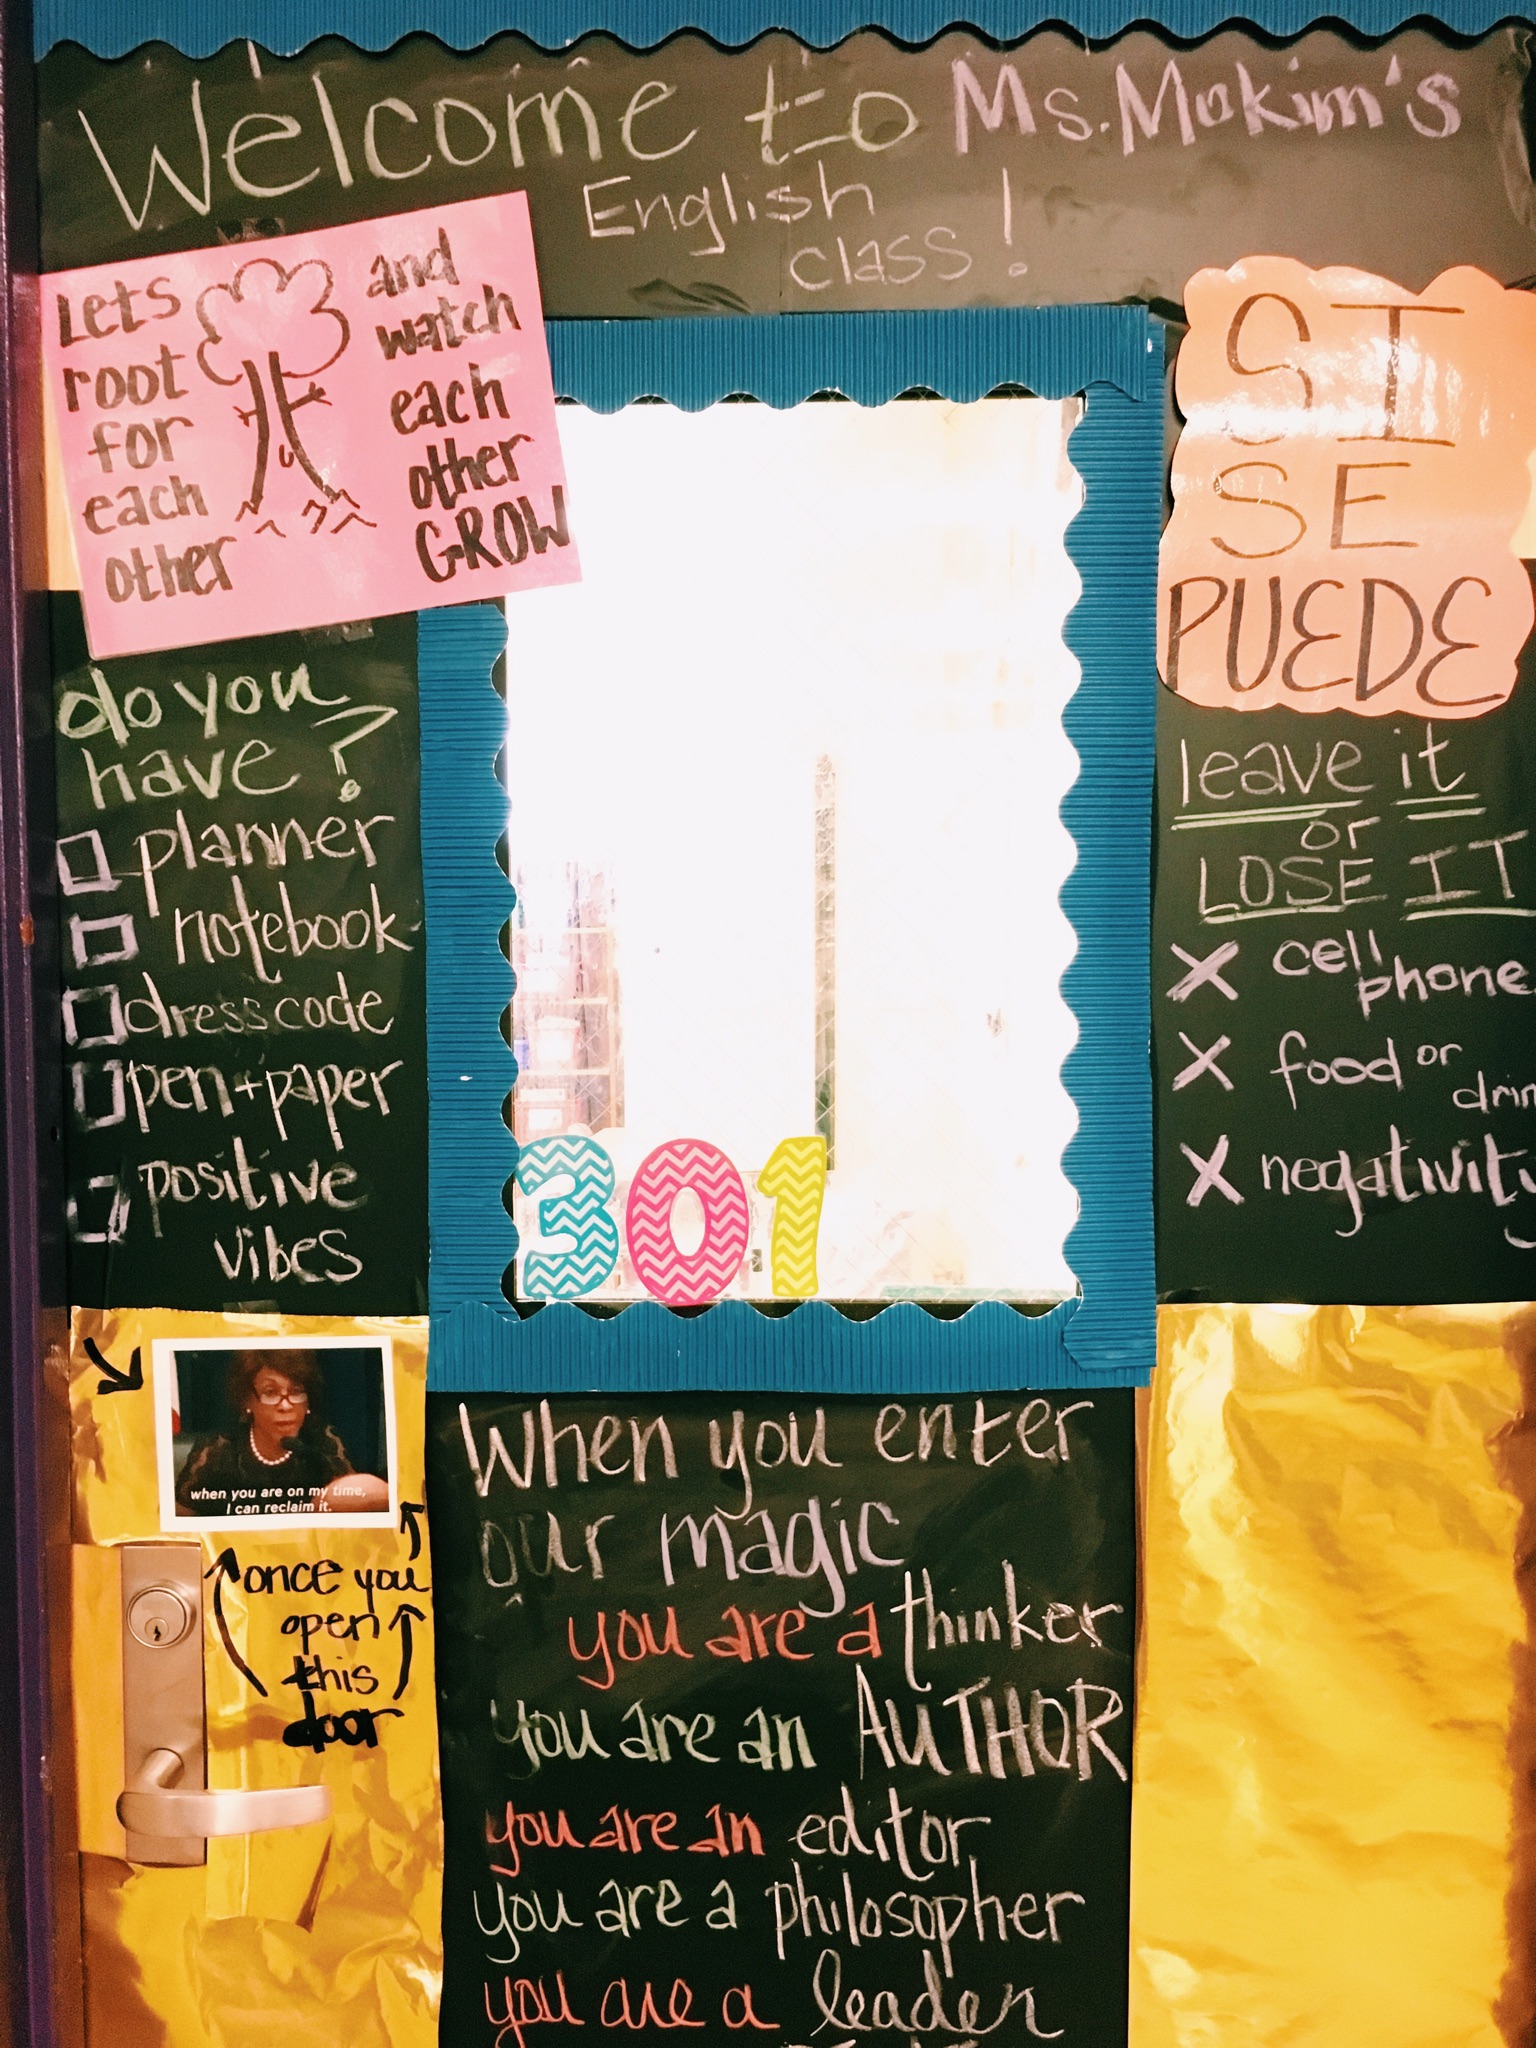 Welcome to Ms. Mokim's
English
class!
Lets
root
for
each
other
and
watch
each
other
GROW
SI
SE
PUEDE
do you
have?
planner
notebook
dress code
pen + paper
positive
vibes
leave it
or
LOSE IT
X cell
phone
X food or
drin
X negativity
301
when you are on my time,
I can reclaim it.
once you
open
this
door
When you enter
our magic
you are a thinker
you are an AUTHOR
you are an editor
you are a philosopher
you are a leader